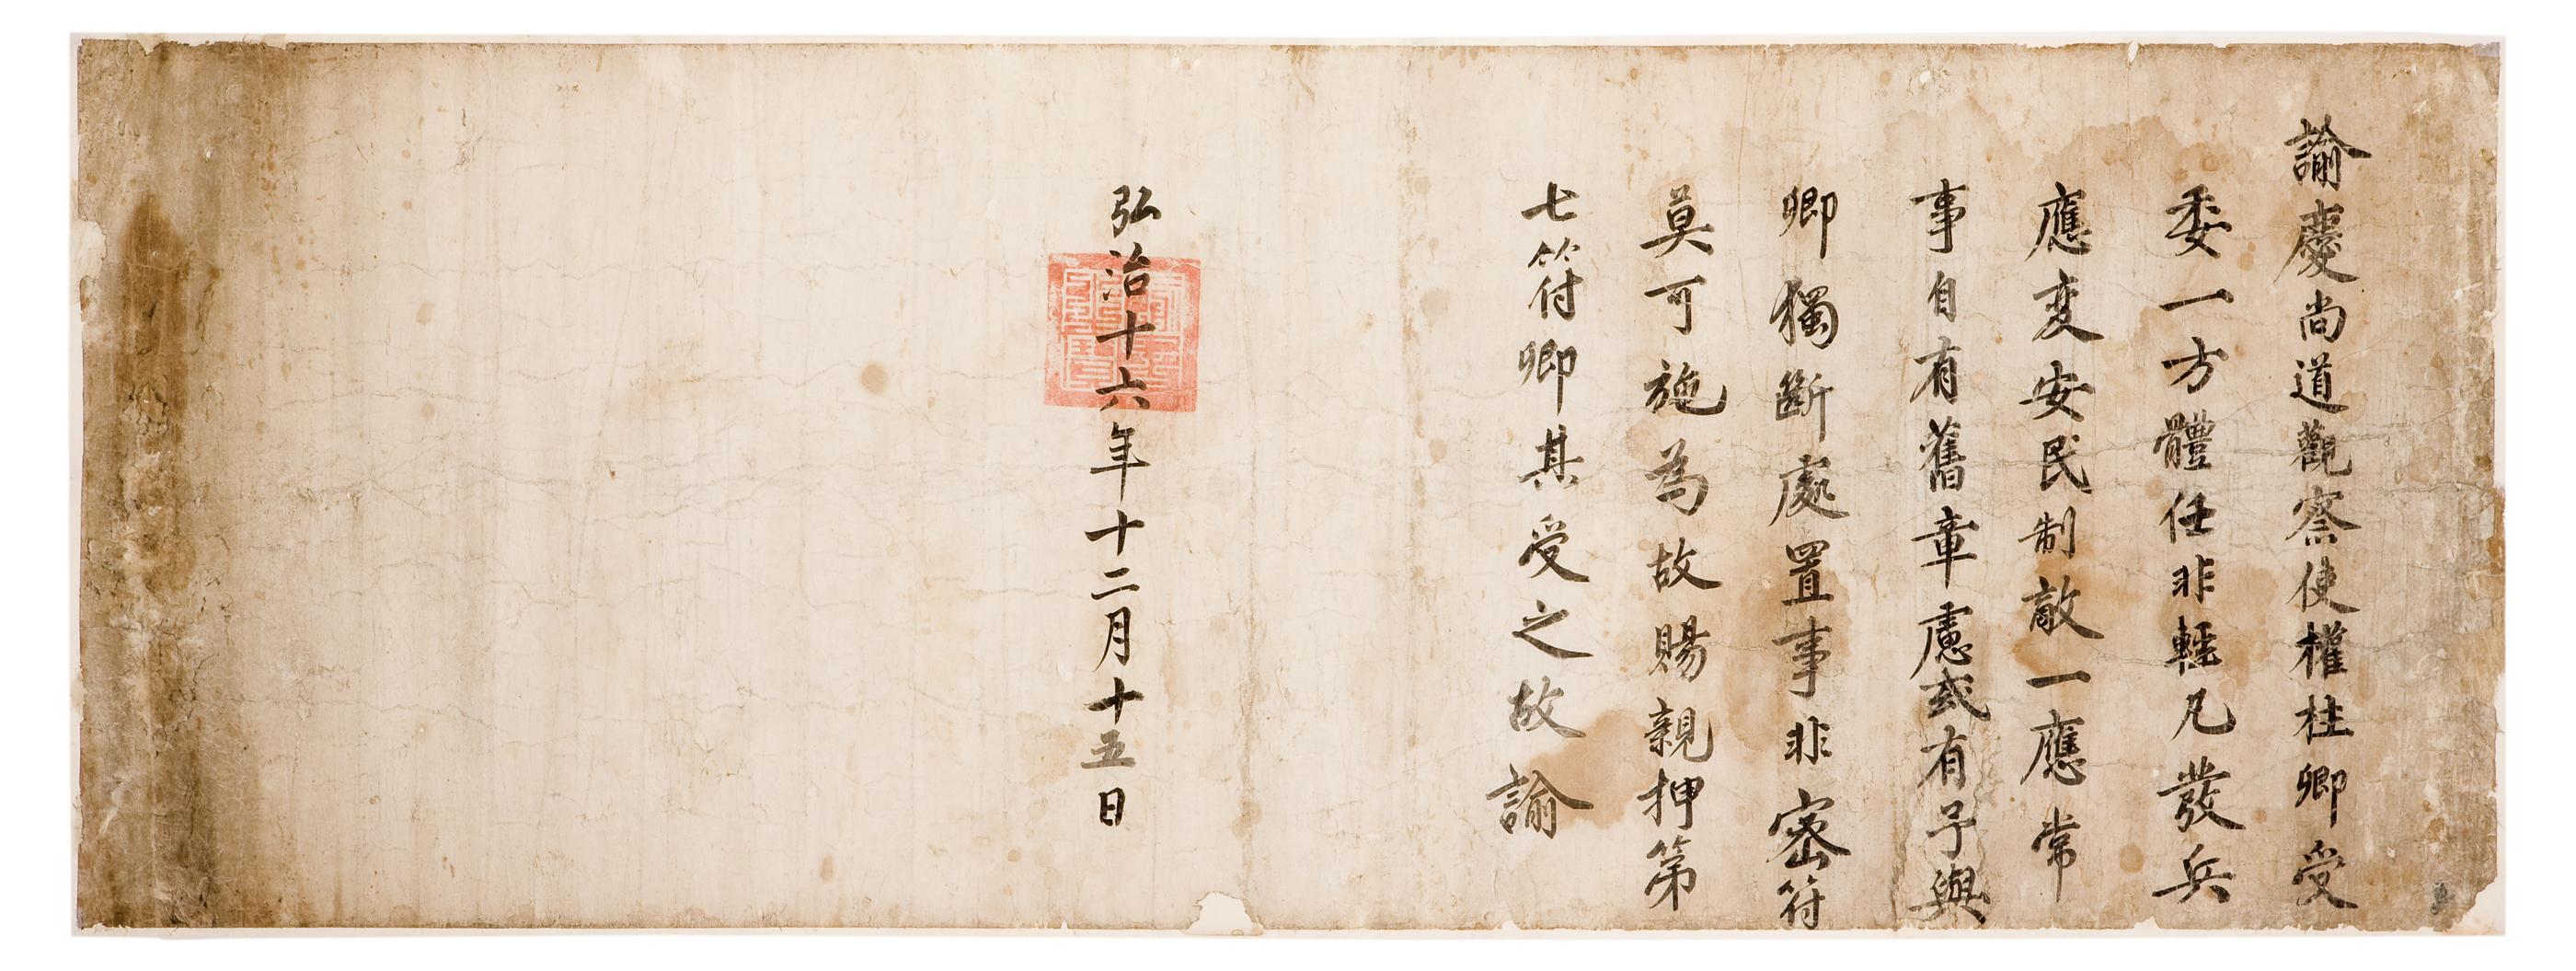 諭慶尚道觀察使權柱卿受
委一方體任非輕凡發兵
應変安民制敵一應常
事自有舊章慮或有予與
卿獨斷處置事非密符
莫可施為故賜親押第
七符卿其受之故諭
弘治十六年十二月十五日